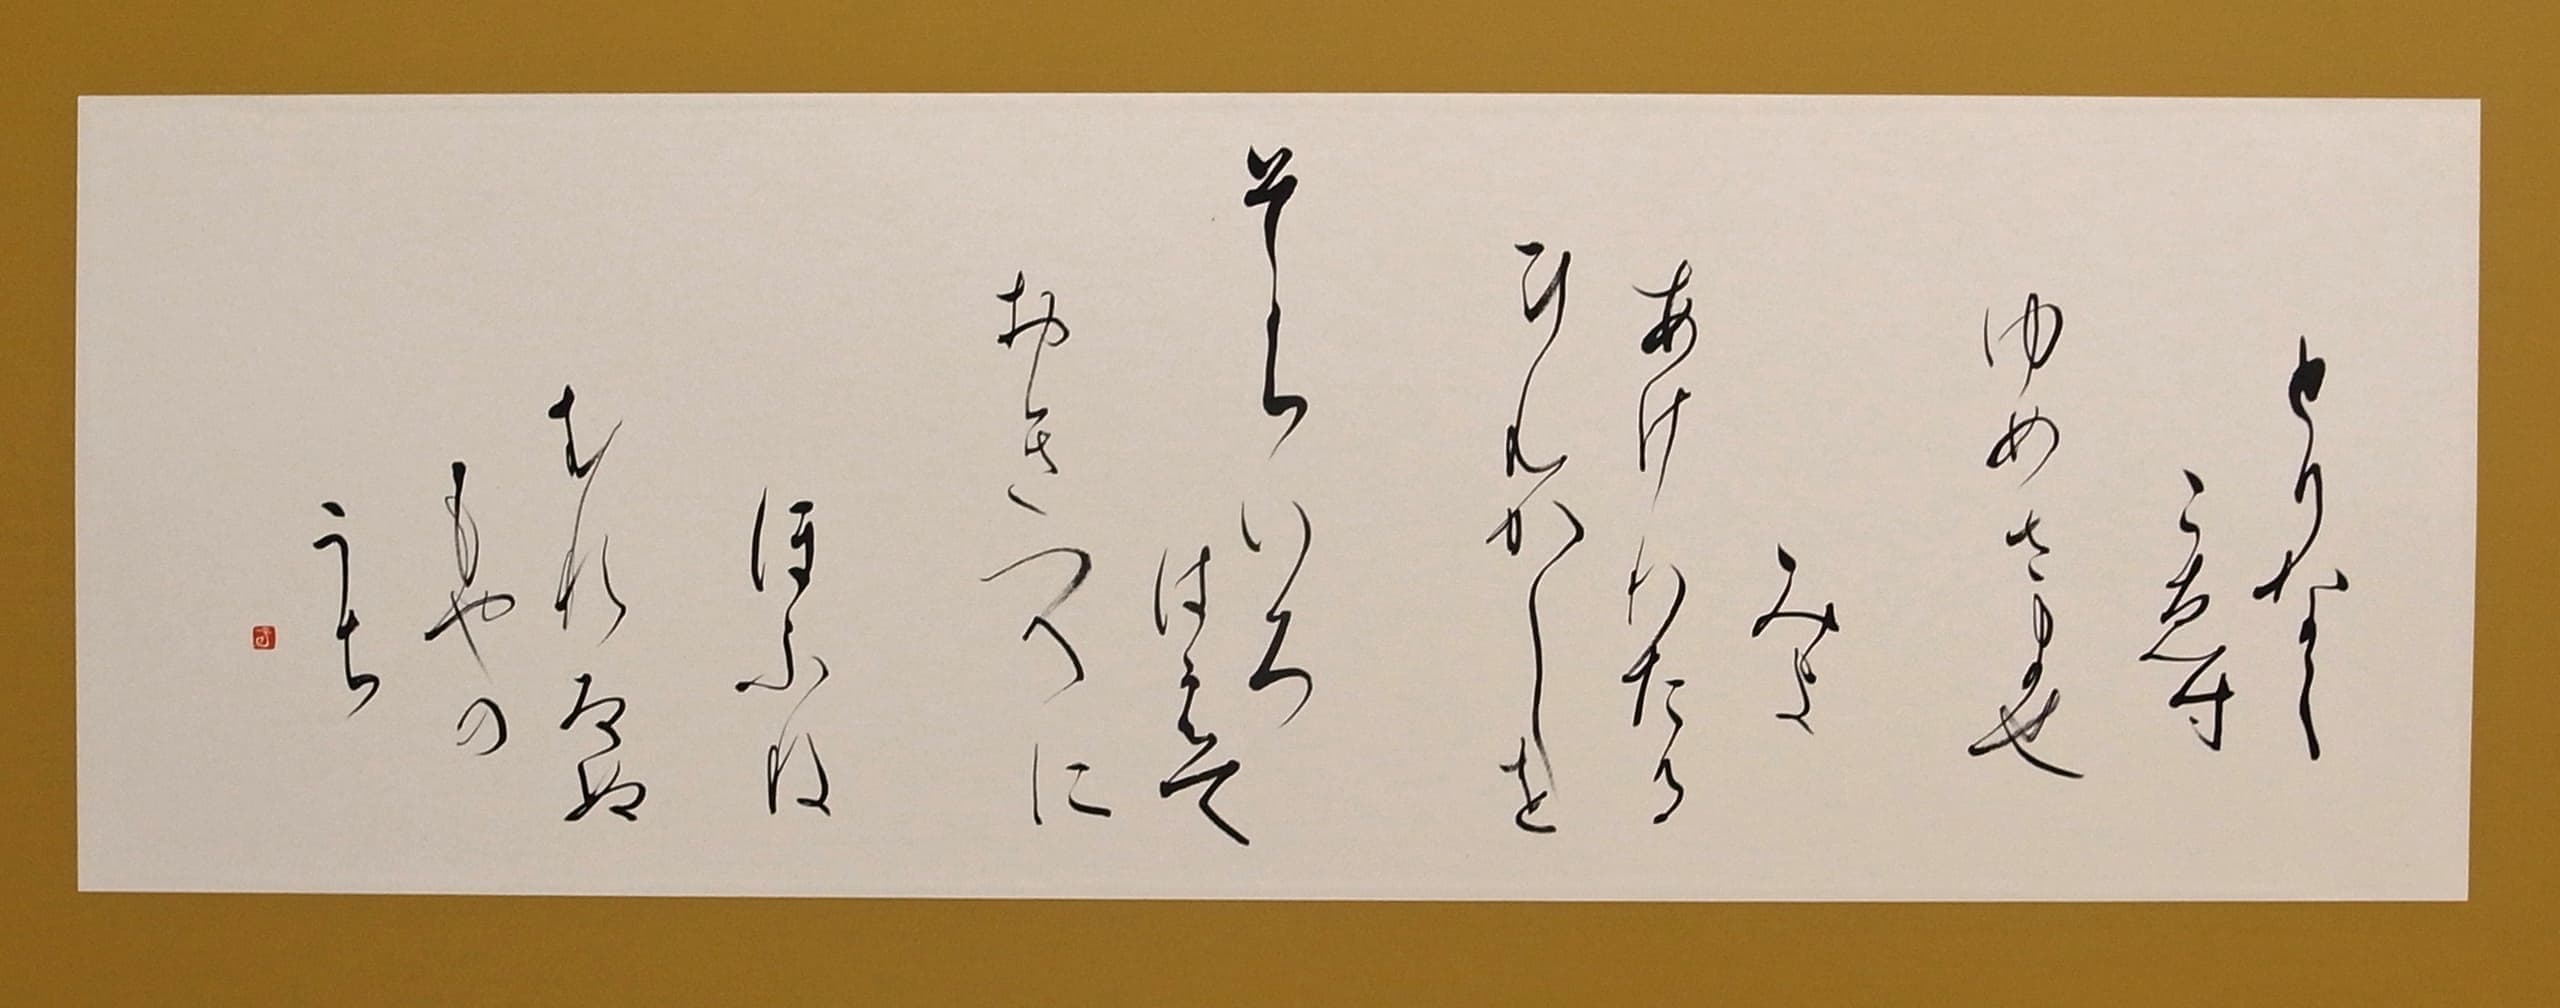 とりなく
こゑす
ゆめさませ
みよ
あけわたる
ひんかしを
そらいろ
はえて
おきつへに
ほふね
むれゐぬ
もやの
うち